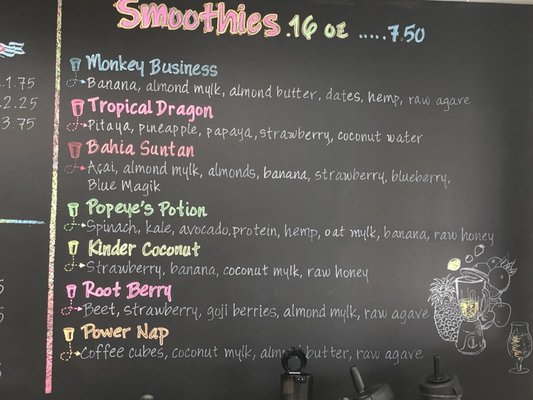 Smoothies .16 oz .....7.50
.1.75
.2.25
.3.75
Monkey Business
Banana, almond mylk, almond butter, dates, hemp, raw agave
Tropical Dragon
Pitaya, pineapple, papaya, strawberry, coconut water
Bahia Suntan
Açai, almond mylk, almonds, banana, strawberry, blueberry,
Blue Magik
Popeye's Potion
Spinach, kale, avocado, protein, hemp, oat mylk, banana, raw honey
Kinder Coconut
Strawberry, banana, coconut mylk, raw honey
Root Berry
Beet, strawberry, goji berries, almond mylk, raw agave
Power Nap
Coffee cubes, coconut mylk, almond butter, raw agave